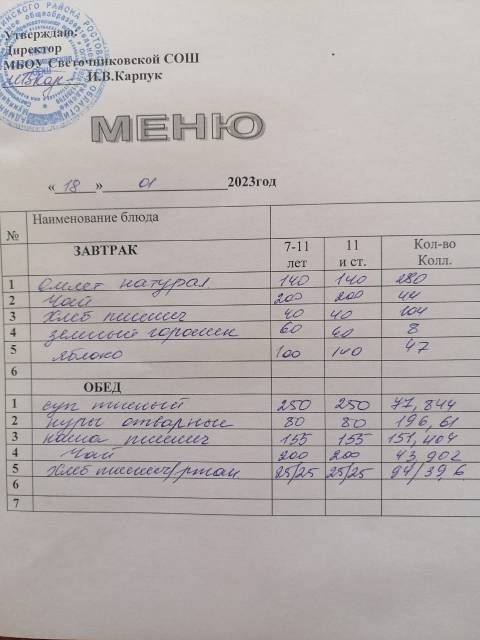 Утверждаю:
Директор
МБОУ Светочниковской СОШ
И.В.Карпук
МЕНЮ
« 18 » 01 2023год
№ Наименование блюда
ЗАВТРАК 7-11 лет 11 и ст. Кол-во Колл.
1 омлет натурал 140 140 280
2 Чай 200 200 44
3 хлеб пшенич 40 40 104
4 зеленый горошек 60 60 8
5 яблоко 100 140 47
6
ОБЕД
1 суп пшеный 250 250 77,844
2 куры отварные 80 80 196,61
3 каша пшенич 155 155 151,404
4 Чай 200 200 43,902
5 хлеб пшенич/ржан 25/25 25/25 94/39,6
6
7